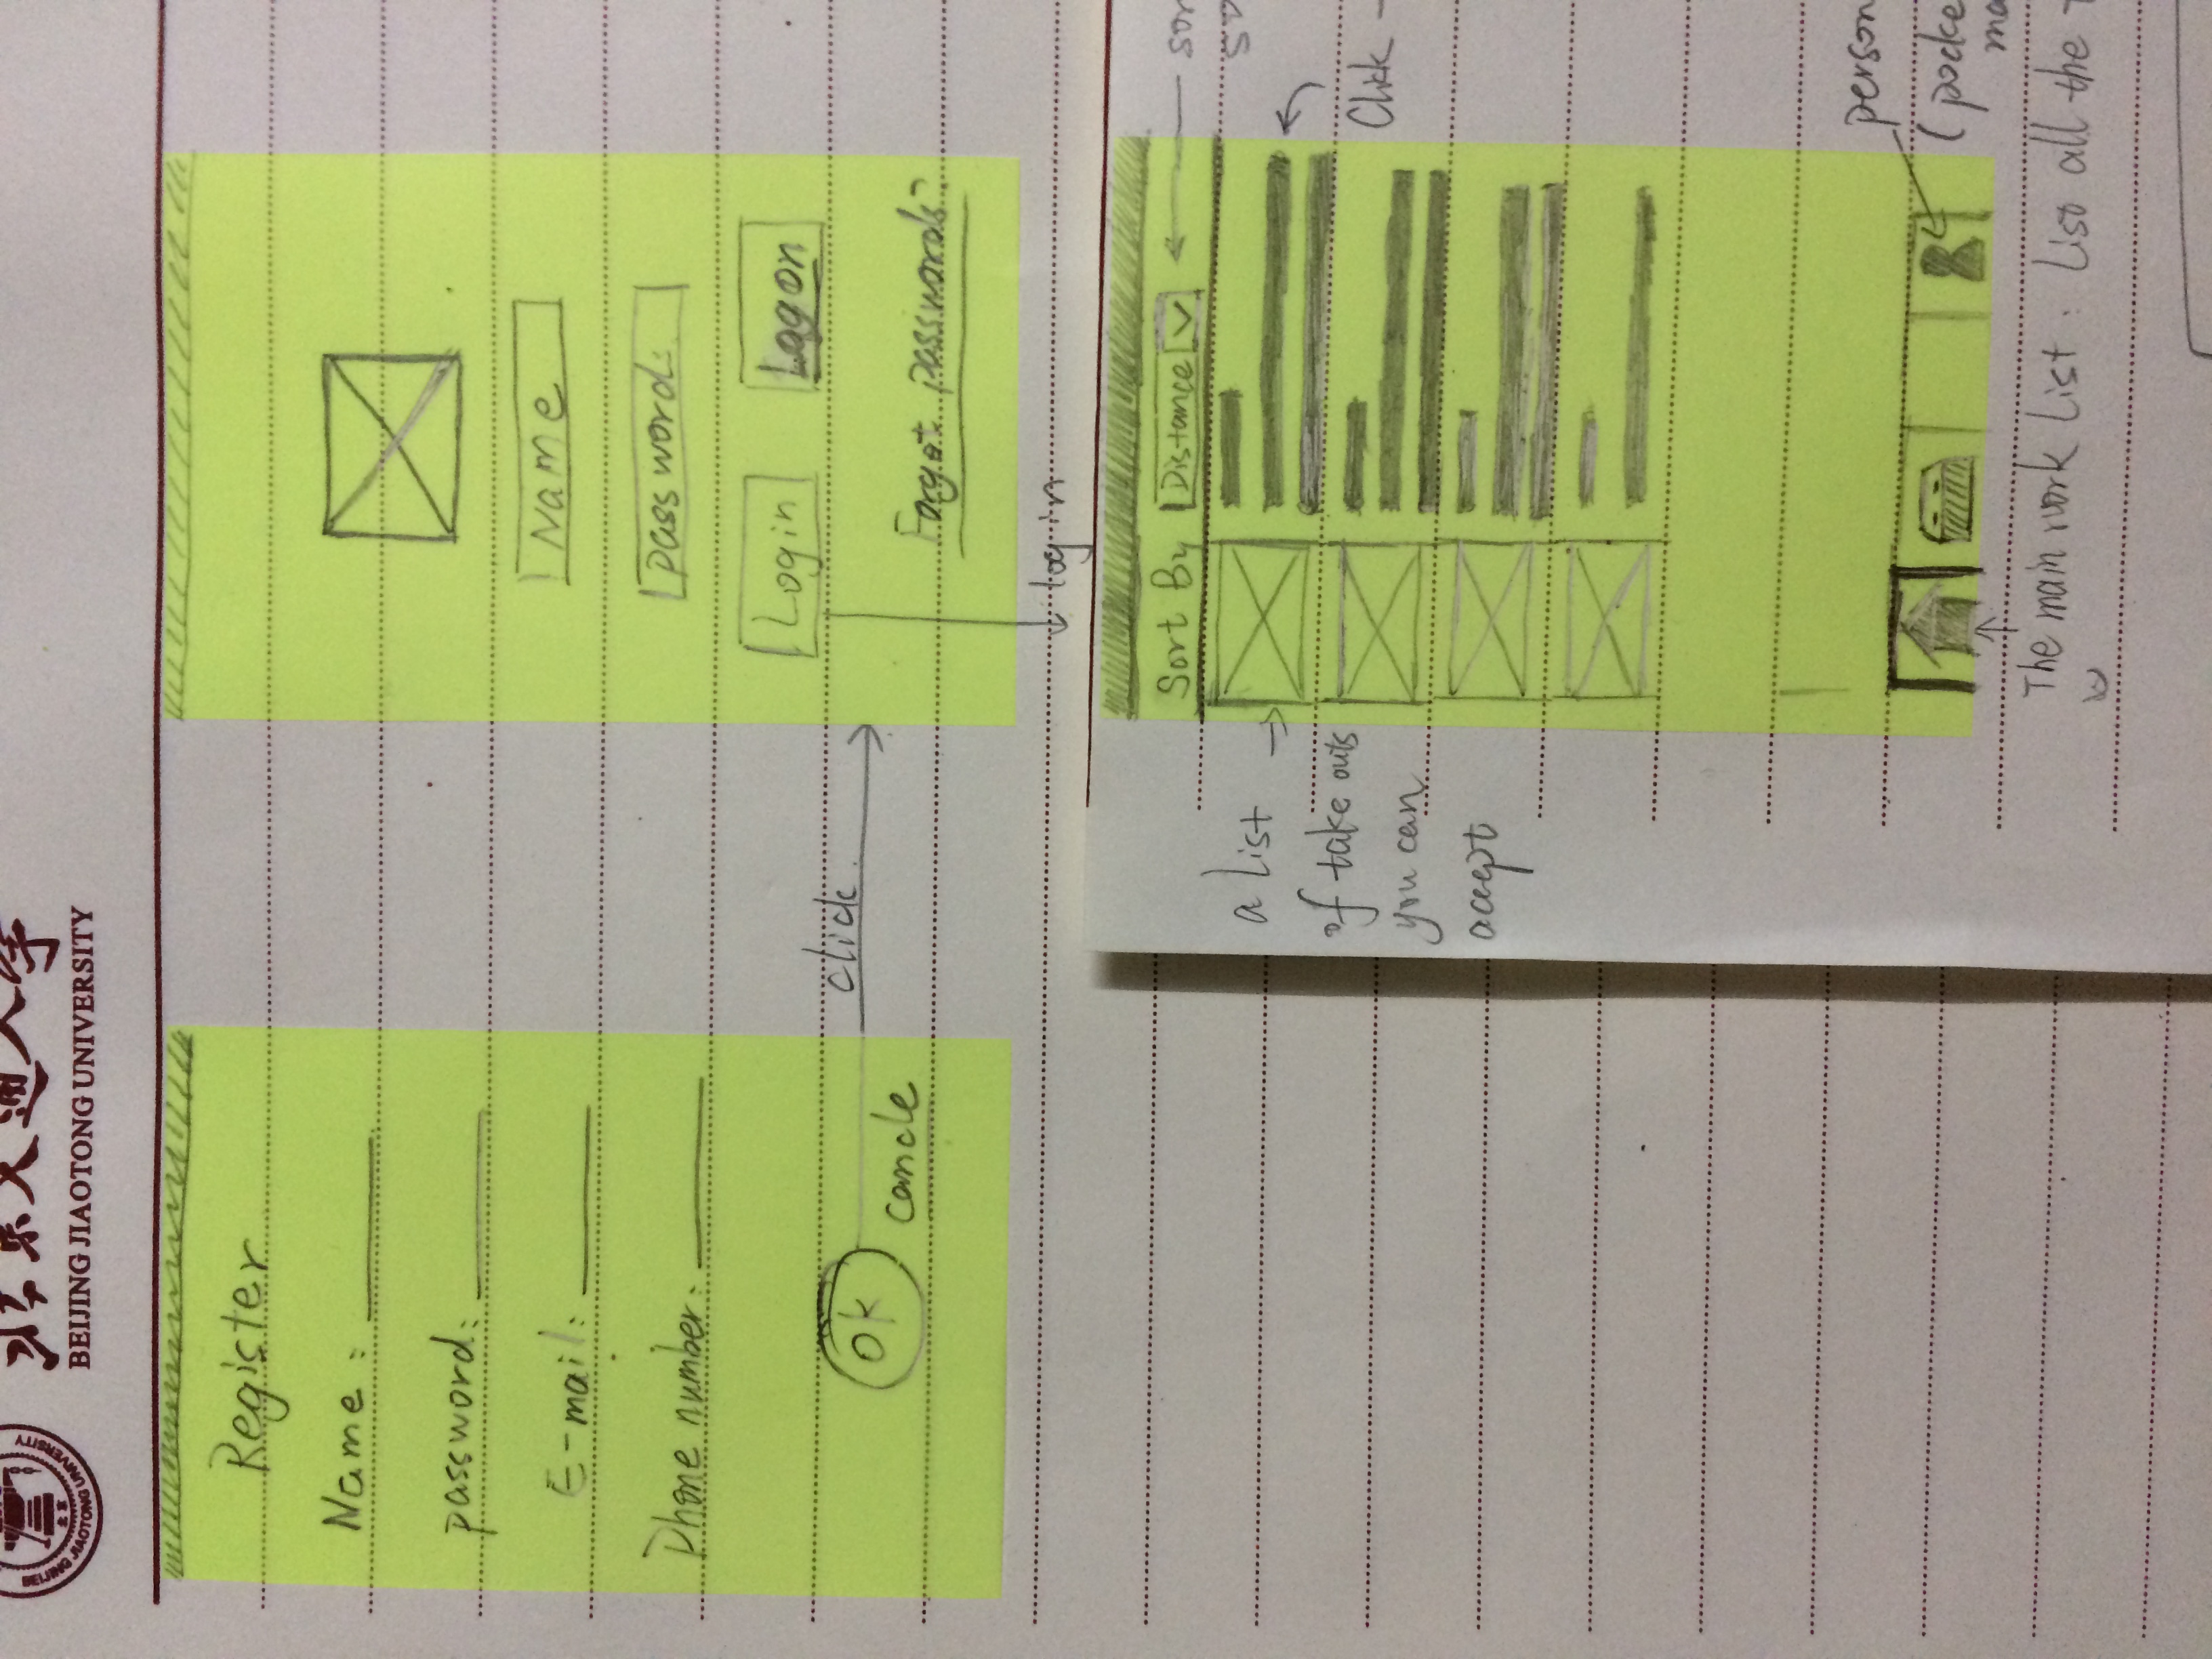 北京交通大学
BEIJING JIAOTONG UNIVERSITY
BEIJING JIAOTONG UNIVERSITY
Register
Name :
password:
E-mail:
Phone number:
OK
cancle
click.
Name
password:
Login
Logon
Forgot passwords?
log in
Sort By Distance
sor
a list
of take outs
you can
acept
Click -
person
( pocke
ma
The main work list : List all the